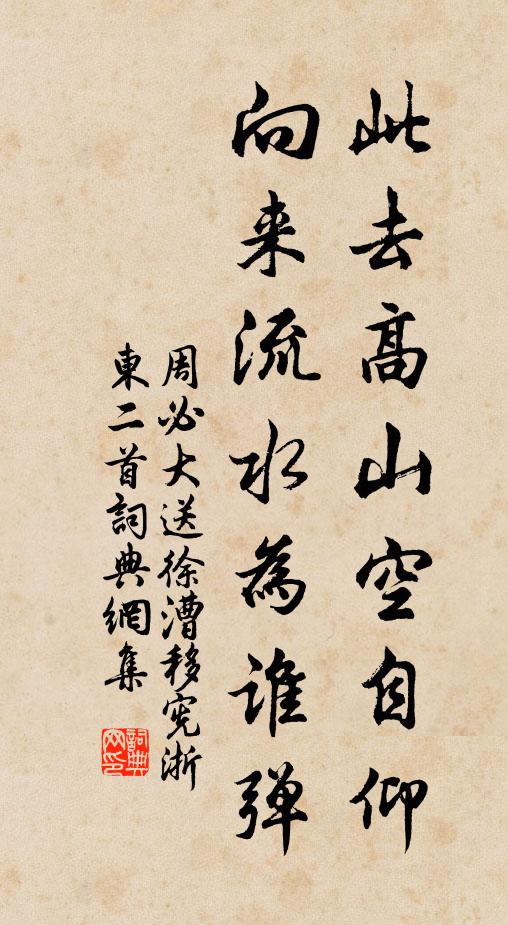 此去髙山空自仰
向来流水為谁弹
周必大送徐漕移宪浙
東二首詞典網集
詞典网印